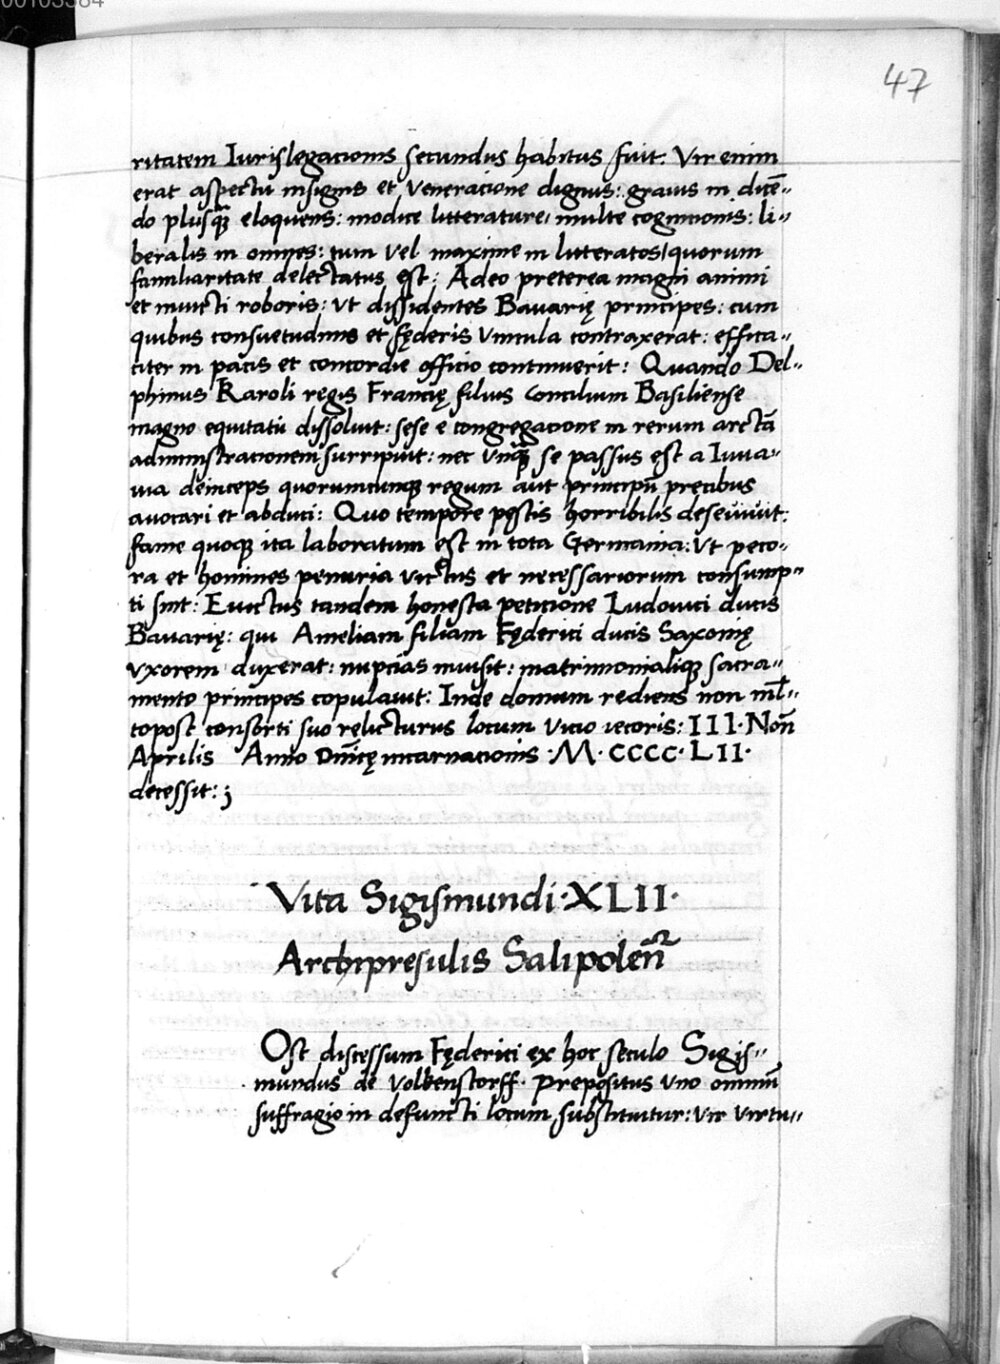 47
ritatem Iurislegacionis secundus habitus fuit: Vir enim
erat aspectu insignis et veneracione dignus: grauis in dicē-
do plusq̃ eloquens: modice litterature, multe cognicionis: li-
beralis in omnes: tum vel maxime in litteratos, quorum
familiaritate delectatus est: Adeo preterea magni animi
et inuicti roboris: vt dissidentes Bauarię principes: cum
quibus consuetudinis et fęderis vincula contraxerat: effica-
citer in pacis et concordie officio continuerit: Quando Del-
phinus Karoli regis Francię filius Concilium Basiliense
magno equitatū dissoluit: sese e congregacione in rerum arctā
administracionem surripuit: nec vnq̃ se passus est a Iuua-
uia deinceps quorumcunq3 regum aut principū pręcibus
auocari et abduci: Quo tempore pęstis horribilis deseuiuit:
fame quoq3 ita laboratum est in tota Germania: Vt peco-
ra et homines penuria victus et necessariorum consump-
ti sint: Euictus tandem honesta peticione Ludouici ducis
Bauarię: qui Ameliam filiam Fęderici ducis Saxonię
vxorem duxerat: nupcias inuisit: matrimonialiq3 sacra-
mento principes copulauit: Inde domum rediens non ml̄-
topost consorti suo relicturus locum vicio iecoris: III· Non̄
Aprilis Anno Dn̄icę incarnacionis ·M· CCCC· LII·
decessit: ;
Vita Sigismundi· XLII·
Archipresulis Salipoleñ
Ost discessum Fęderici ex hoc seculo Sigis-
mundus de Volkenstorff· Prepositus vno omniū
suffragio in defuncti locum substituitur: vir virtu-